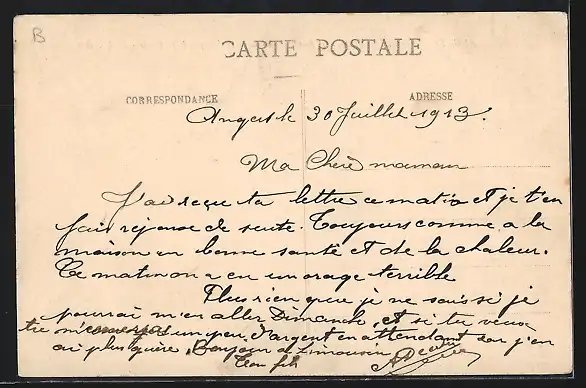 B
CARTE POSTALE
CORRESPONDANCE
ADRESSE
Angers le 30 Juillet 1913.
Ma Chère maman
J'ai reçue ta lettre ce matin et je t'en
fait réponse de suite. Toujours comme a la
maison en bonne santé et de la chaleur.
Ce matin on a eu un orage terrible
Plus rien que je ne sais si je
pourrai m'en aller Dimanche, et si tu veux
un peu d'argent en attendant car j'en
ai plus guère, Bonjour a Limousin
Ton fils